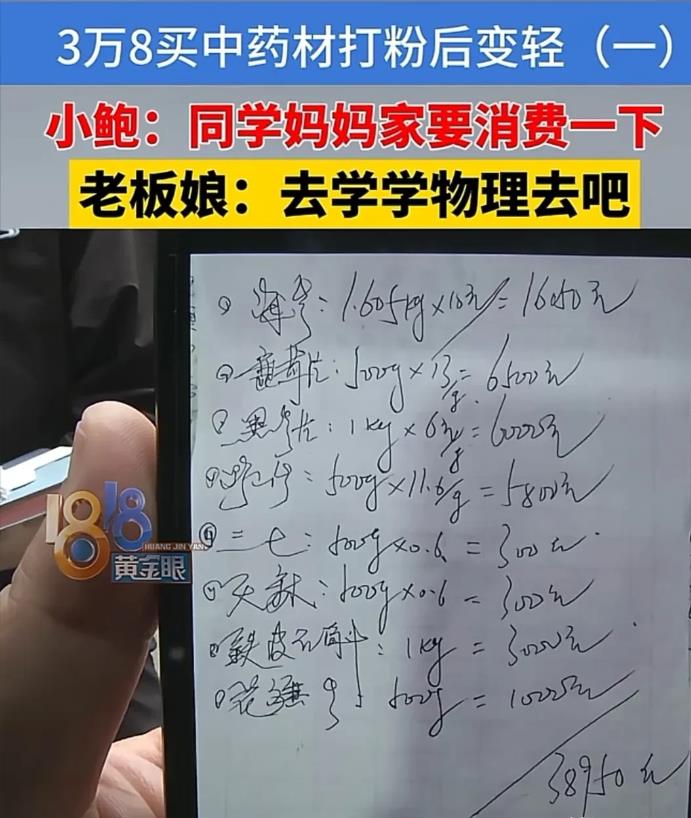 3万8买中药材打粉后变轻（一）
小鲍：同学妈妈家要消费一下
老板娘：去学学物理去吧
海参：1.605kg×10元=16050元
500g×13/g=6500元
1kg×6元/g=6000元
500g×11.6/g=5800元
三七：500g×0.6=300元
天麻：500g×0.6=300元
铁皮石斛：1kg=3000元
500g=1000元
38950元
1818
HUANG JIN YAN
黄金眼